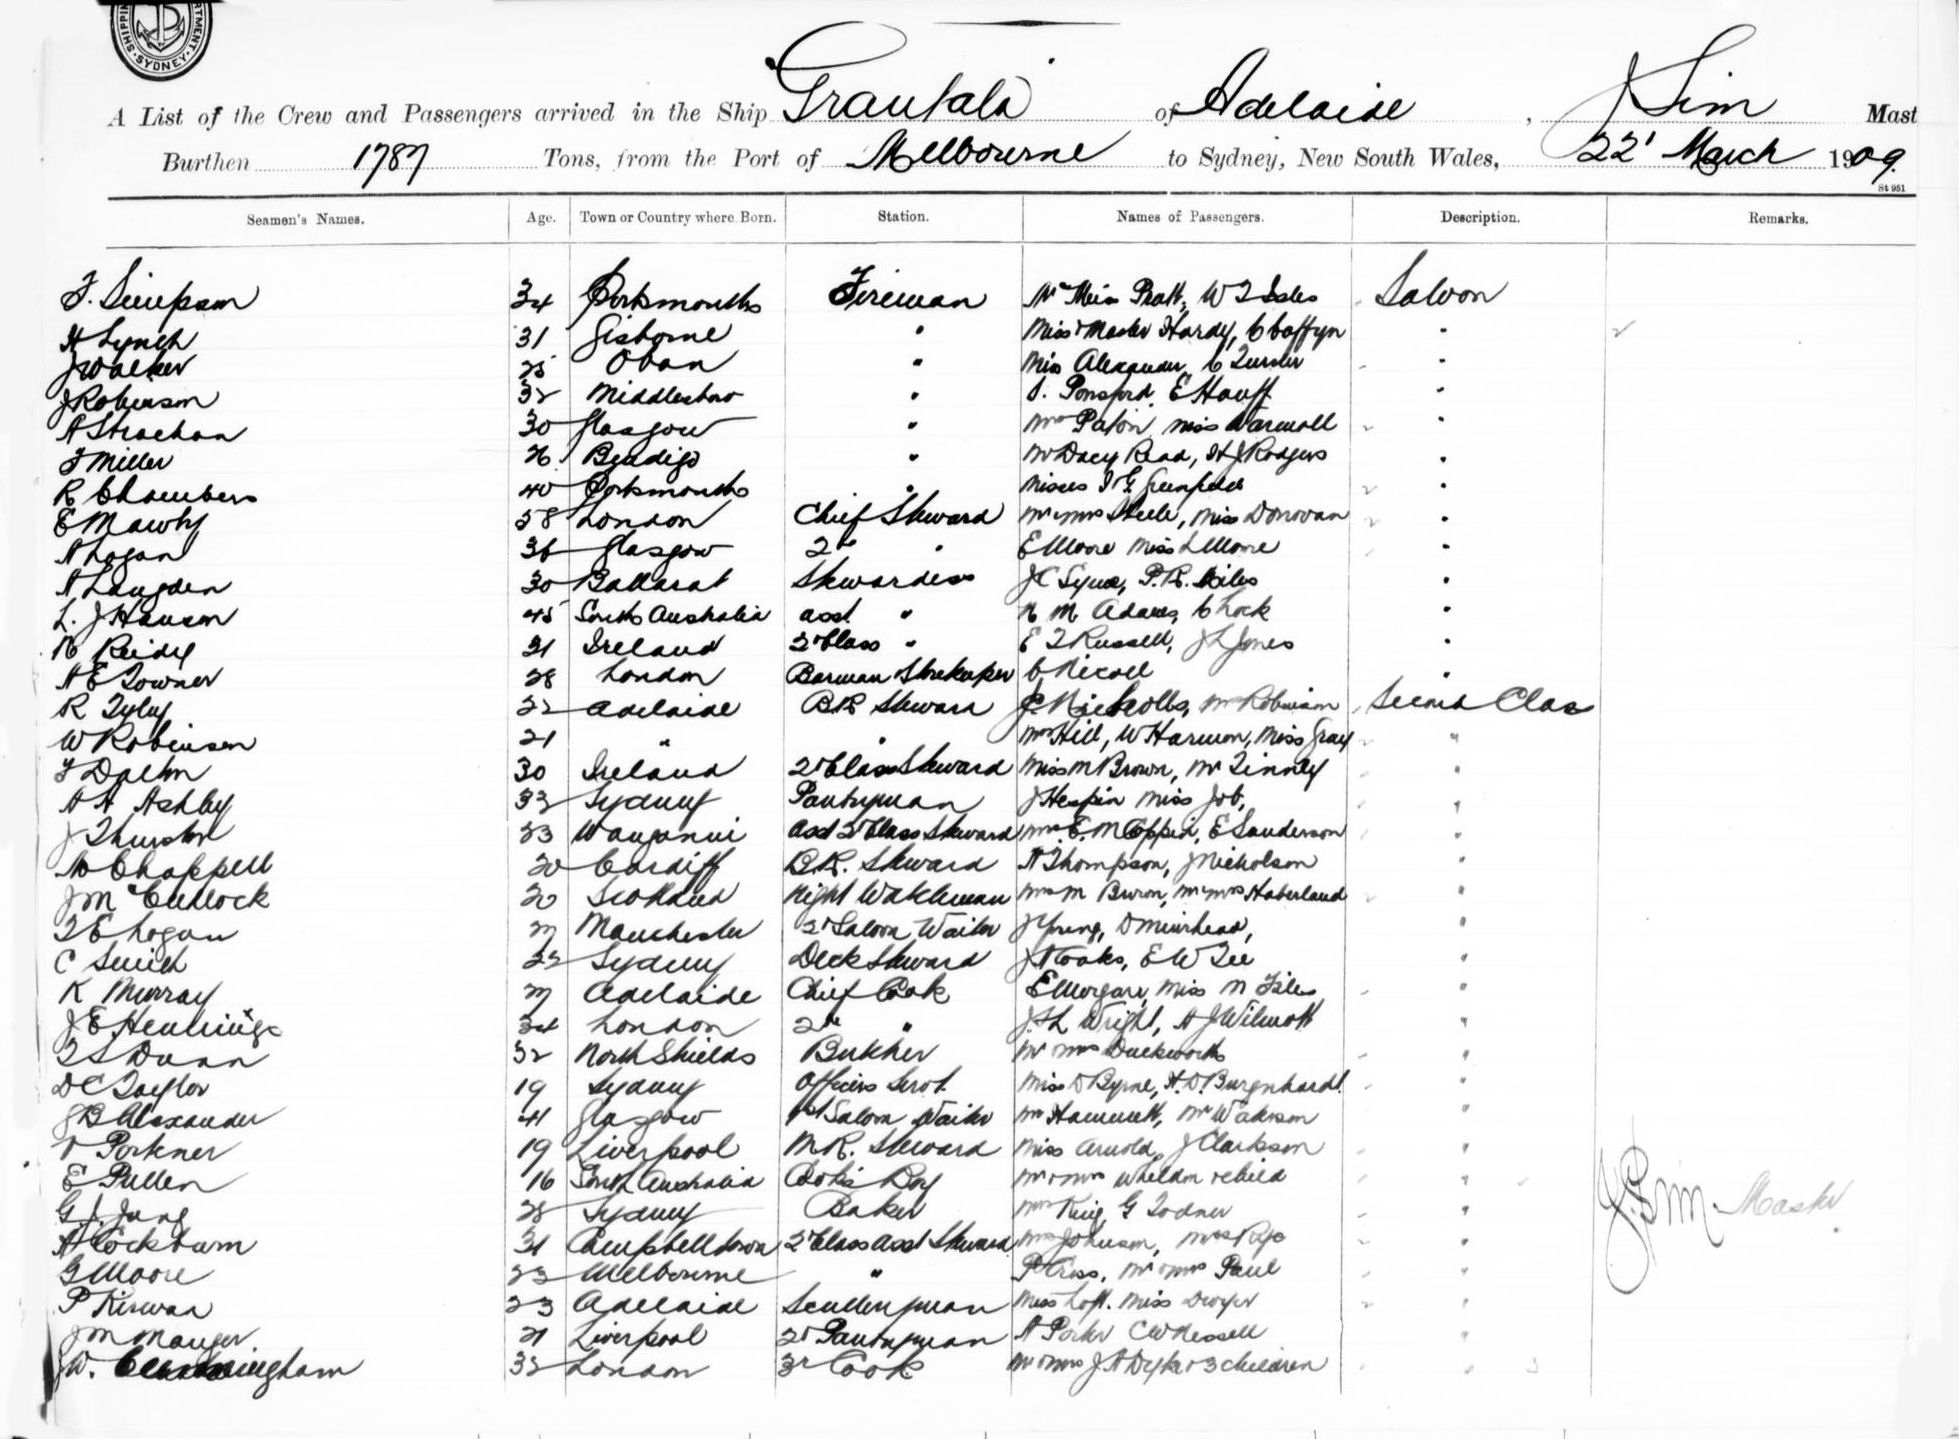 SHIPPING DEPARTMENT SYDNEY
A List of the Crew and Passengers arrived in the Ship Grantala of Adelaide, J Sim Mast
Burthen 1787 Tons, from the Port of Melbourne to Sydney, New South Wales, 22' March 1909.
St 951
Seamen's Names. Age. Town or Country where Born. Station. Names of Passengers. Description. Remarks.
F. Simpson 34 Portsmouth Fireman Pratt, W T Saloon
H Lynch 31 Gisborne " Miss & Master Hardy, C Caffyn "
J Walker 25 Oban " Miss Alexander, C "
J Robinson 32 Middlesboro " Ponsford, E Hauff "
A Strachan 30 Glasgow " Mrs Paton, Miss Warmoll "
F Miller 26 Bendigo " Mr Dacy Read, H J Rodgers "
R Chambers 40 Portsmouth " Misses I G Greenfield "
E Mawby 58 London Chief Steward Mr & Mrs Steele, Miss Donovan "
A Logan 36 Glasgow 2nd " E Moore Miss L Moore "
A Langden 30 Ballarat Stewardess J C Syme, P. R. Miles "
L. J Hansen 45 South Australia asst " M Adams, C Lock "
Reidy 31 Ireland 2 Class " E T Russell, J L Jones "
A E Towner 28 London Barman Storekeeper C Nicoll "
R 22 Adelaide B.R Steward J Nicholls, Mr Robinson Second Class
W Robinson 21 " " Mrs Hill, W Harmon, Miss Gray "
F Dalton 30 Ireland 2 Class Steward Miss M Brown, Mr Tinney "
A A Ashby 32 Sydney Pantryman J Hespin Miss Job, "
J Thurston 23 Wanganui Asst 2 Class Steward Mrs E. M Eppin, E Sanderson "
Chappell 20 Cardiff B.R. Steward A Thompson, J Nicholson "
J McCullock 20 Scotland Night Watchman Mrs M Buron, Mr & Mrs Haberland "
T E Logan 27 Manchester 2 Saloon Waiter J Young, D Muirhead, "
C Smith 22 Sydney Deck Steward J A Coaks, E W Tee "
K Murray 27 Adelaide Chief Cook E Morgan, Miss M Files "
J E Hennings 34 London 2nd " J. H. Wright, A J Wilmott "
T S Dunn 32 North Shields Butcher Mr & Mrs Duckworth "
D C Taylor 19 Sydney Officers Servt Miss D Byrne, H. D. Burgnhardt "
J B Alexander 41 Glasgow 1st Saloon Waiter Mr Hammett, Mr Watson "
V Porkner 19 Liverpool M.R. Steward Miss Arnold, J Clarkson "
E Pullen 16 South Australia Cook's Boy Mr & Mrs Wheldon & child "
G. J. Jung 28 Sydney Baker Mrs King, G Todner "
A Cockburn 31 Campbelltown 2 Class Asst Steward Mrs Johnson, "
G Moore 23 Melbourne " P Cross, Mr & Mrs Paul "
P Kirwan 23 Adelaide Scullery man Miss Loft. Miss Dwyer "
J M Manger 21 Liverpool 2 Pantryman A Porter C W Nessell "
J W. Cunningham 32 London 3r Cook Mr & Mrs J A Dyke & 3 children " 3
J. Sim Master